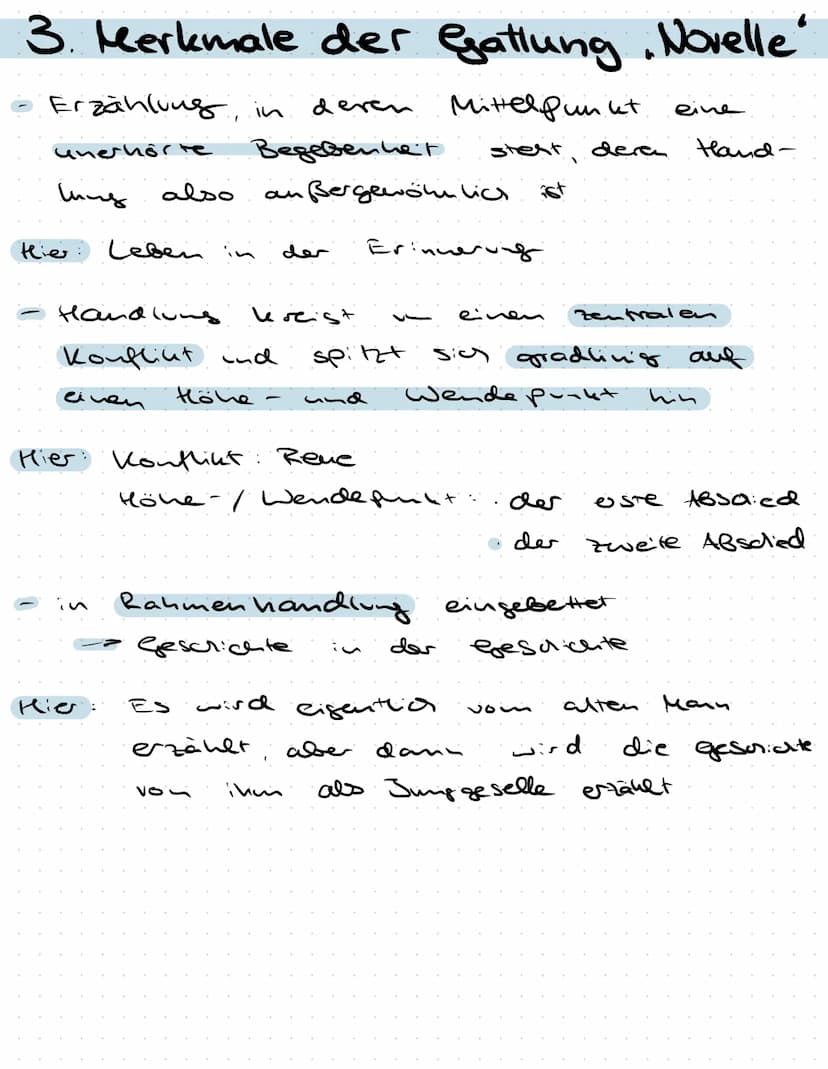 3. Merkmale der Gattung „Novelle"
- Erzählung, in deren Mittelpunkt eine
unerhörte Begebenheit steht, deren Hand-
lung also außergewöhnlich ist
Hier: Leben in der Erinnerung
- Handlung kreist um einen zentralen
Konflikt und spitzt sich gradlinig auf
einen Höhe- und Wendepunkt hin
Hier: Konflikt: Reue
Höhe-/Wendepunkt: · der erste Abschied
· der zweite Abschied
- in Rahmenhandlung eingebettet
→ Geschichte in der Geschichte
Hier: Es wird eigentlich vom alten Mann
erzählt, aber dann wird die Geschichte
von ihm als Junggeselle erzählt